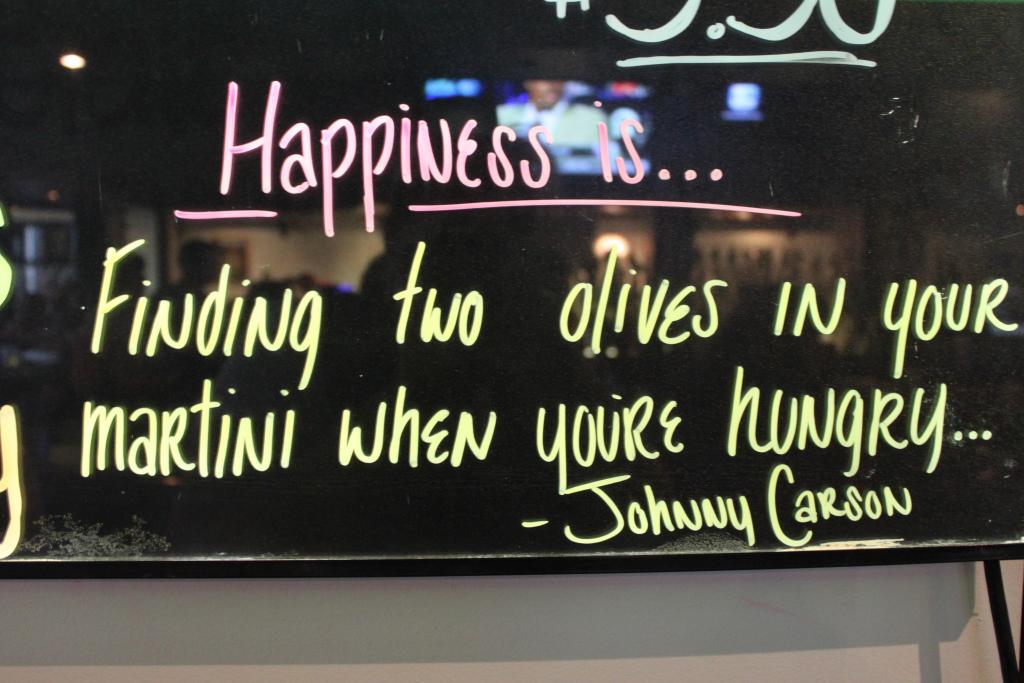 Happiness is...
Finding two olives in your
martini when you're hungry...
- Johnny Carson